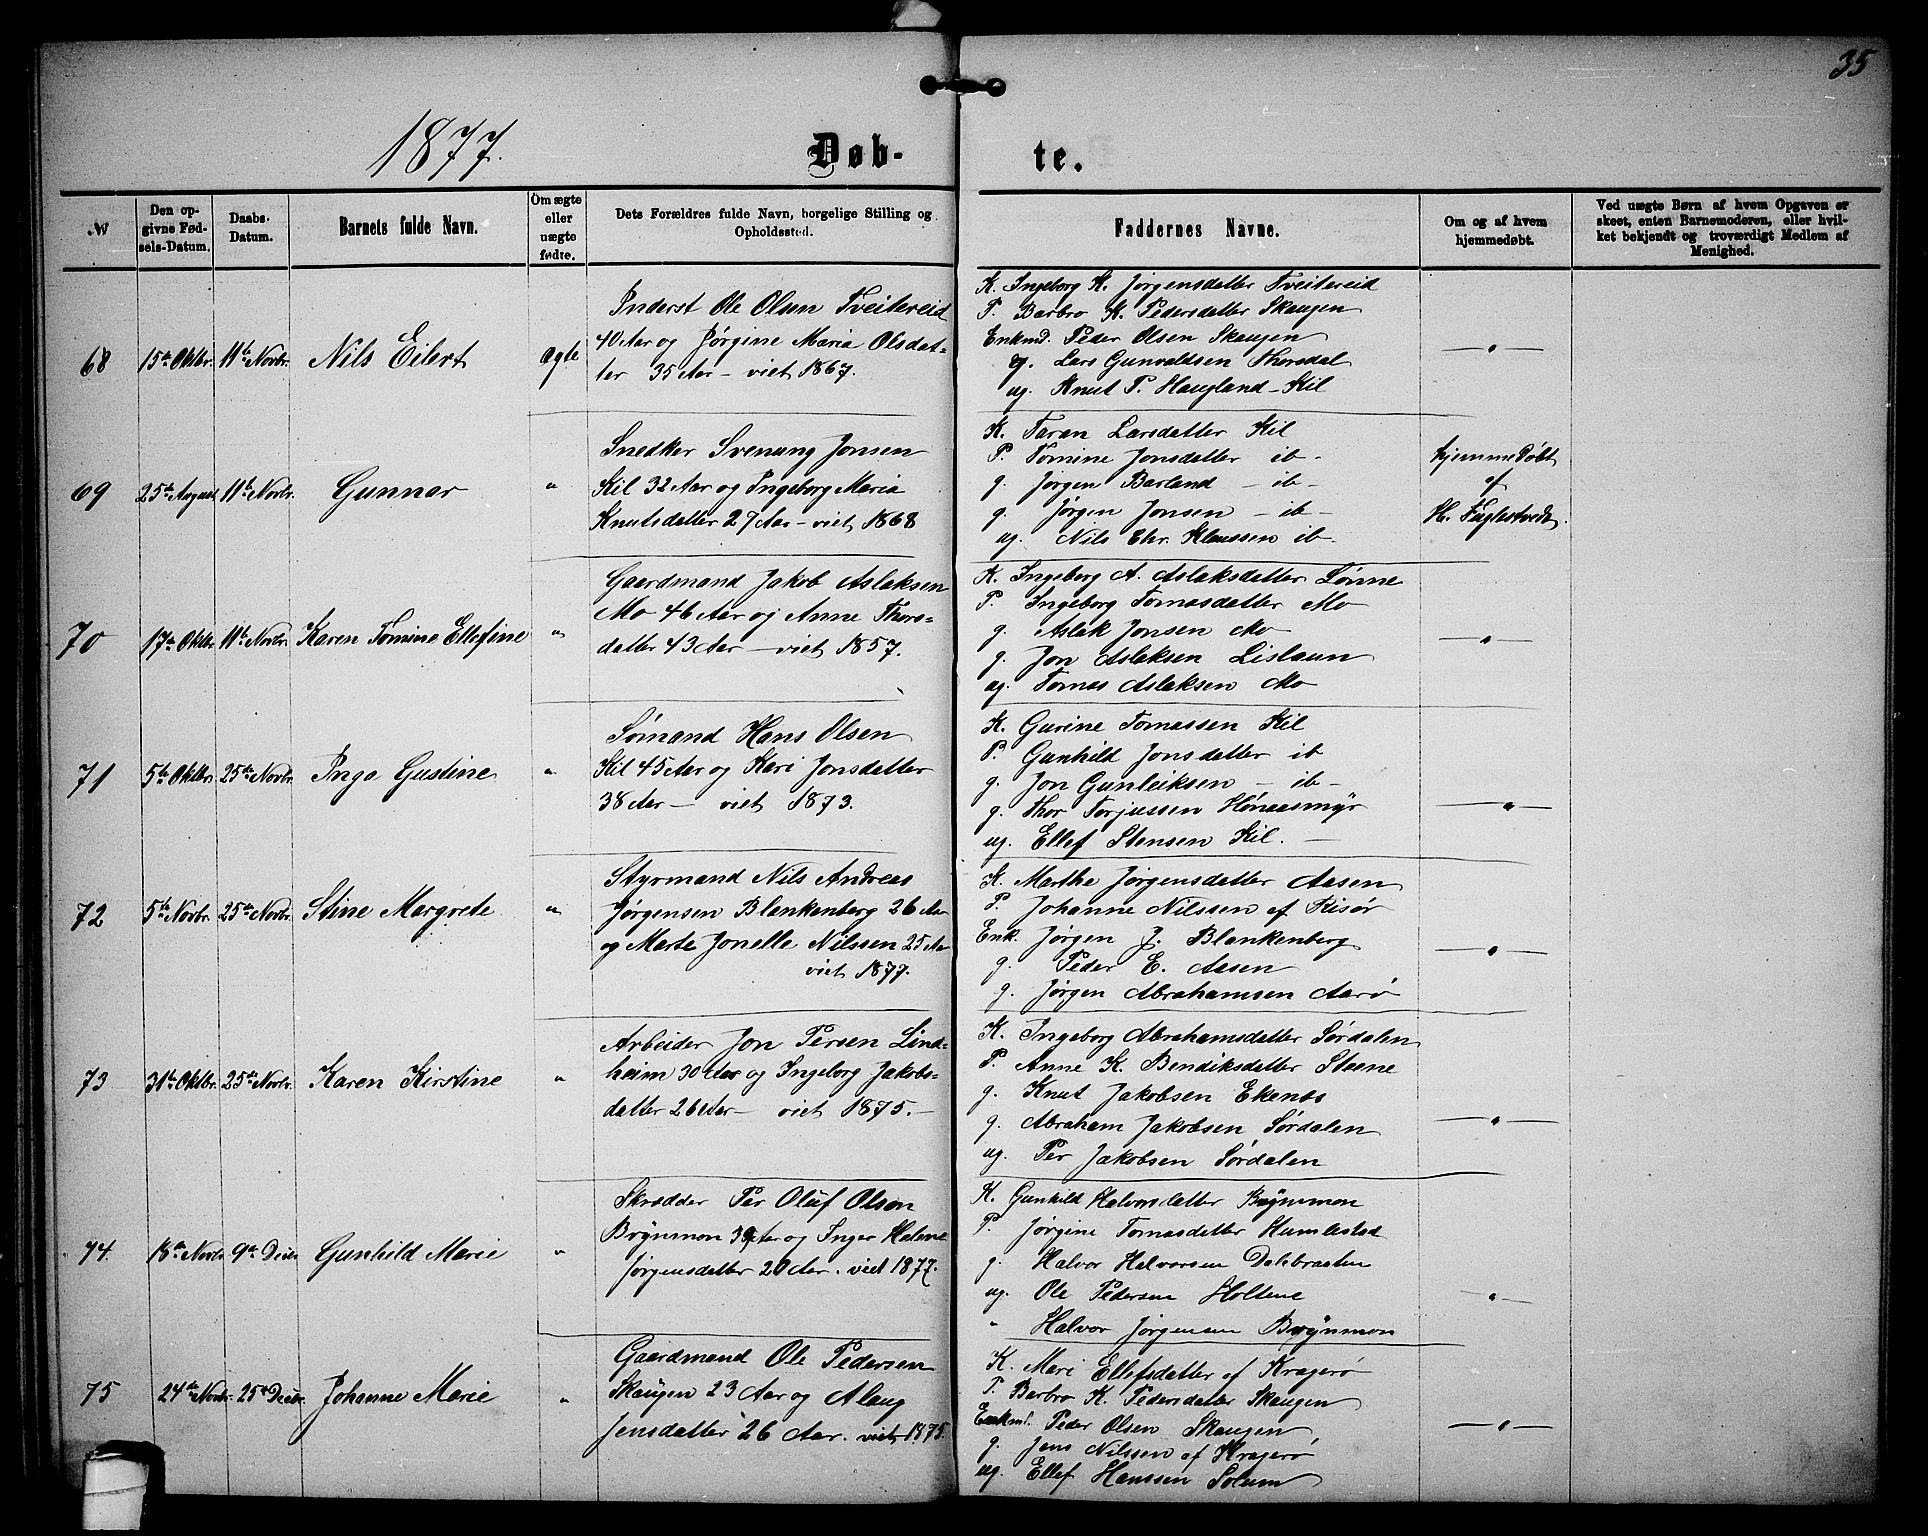 35
1877.
Døb-
te.
№
Den op-
givne Fød-
sels-Datum.
Daabs-
Datum.
Barnets fulde Navn.
Om ægte
eller
uægte
fødte.
Dets Forældres fulde Navn, borgelige Stilling og
Opholdssted.
Faddernes Navne.
Om og af hvem
hjemmedøbt.
Ved uægte Børn af hvem Opgaven er
skeet, enten Barnemoderen, eller hvil-
ket bekjendt og troværdigt Medlem af
Menighed.
68 15de Oktbr. 11te Novbr. Nils Eilert Ægte
Inderst Ole Olsen Tveitereid
40 Aar og Jørgine Maria Olsdat-
ter 35 Aar – viet 1867.
K. Ingeborg K. Jørgensdatter Tveitereid
P. Barbro K. Pedersdatter Skaugen
Enkmd. Peder Olsen Skaugen
g. Lars Gunvaldsen Thorsdal
ug. Knut P. Haugland – Kil
— " —
69 25de August 11te Novbr. Gunnar "
Snedker Svenung Jonsen
Kil 32 Aar og Ingeborg Maria
Knutsdatter 27 Aar – viet 1868
K. Taran Larsdatter Kil
P. Tomine Jonsdatter ib –
g. Jørgen Barland – ib –
g. Jørgen Jonsen – ib –
ug. Nils Chr. Klaussen ib –
hjemmedøbt
af
H. Fuglestvedt.
70 17de Oktbr. 11te Novbr. Karen Tomine Ellefine "
Gaardmand Jakob Aslaksen
Mo 46 Aar og Anne Thors-
datter 43 Aar – viet 1857.
K. Ingeborg A. Aslaksdatter Lønne
P. Ingeborg Tomasdatter Mo
g. Aslak Jonsen Mo
g. Jon Aslaksen Lislaun
ug. Tomas Aslaksen Mo
— " —
71 5te Oktbr. 25de Novbr. Inga Gustine "
Sømand Hans Olsen
Kil 45 Aar og Kari Jonsdatter
38 Aar – viet 1873.
K. Gurine Tomassen Kil
P. Gunhild Jonsdatter ib
g. Jon Gunleiksen – ib –
g. Thor Torjussen Hønaasmyr
ug. Ellef Stensen Kil. –
— " —
72 5te Novbr. 25de Novbr. Stine Margrete "
Styrmand Nils Andreas
Jørgensen Blankenberg 26 Aar
og Marte Jonelle Nilssen 25 Aar
viet 1877.
K. Marthe Jørgensdatter Aasen
P. Johanne Nilssen af Risør
Enk. Jørgen J. Blankenberg
g. Peder E. Aasen
g. Jørgen Abrahamsen Aarø
— " —
73 31te Oktbr. 25de Novbr. Karen Kirstine "
Arbeider Jon Persen Lind-
heim 30 Aar og Ingeborg Jakobs-
datter 26 Aar – viet 1875. –
K. Ingeborg Abrahamsdatter Sørdalen
P. Anne K. Bendiksdatter Steene
g. Knut Jakobsen Ekenes
g. Abraham Jakobsen Sørdalen
ug. Per Jakobsen Sørdalen
— " —
74. 18de Novbr. 9de Decbr. Gunhild Marie "
Skrædder Per Oluf Olson
Brynmon Aar og Inger Halene
Jørgensdatter 20 Aar. viet 1877.
K. Gunhild Halvorsdatter Brynmon
P. Jørgine Tomasdatter Humlestad
g. Halvor Halvorsen Dalebraaten
ug. Ole Pedersen Holtene
" Halvor Jørgensen Brynmon
— " —
75 24de Novbr. 25de Decbr. Johanne Marie "
Gaardmand Ole Pedersen
Skaugen 23 Aar og Aslaug
Jensdatter 26 Aar. viet 1875.
K. Mari Ellefsdatter af Kragerø
P. Barbro K. Pedersdatter Skaugen
Enkmd. Peder Olsen Skaugen
g. Jens Nilssen af Kragerø
ug. Ellef Hanssen Solum
— " —